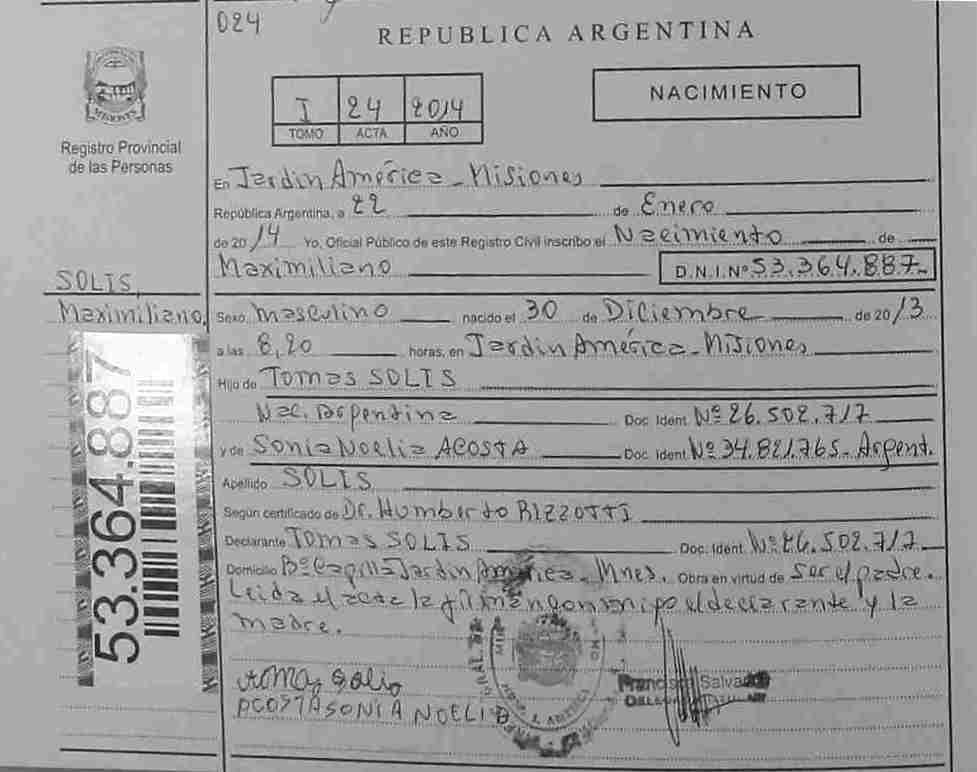 024
REPUBLICA ARGENTINA
I 24 2014
TOMO ACTA AÑO
NACIMIENTO
MISIONES
Registro Provincial
de las Personas
En Jardin América - Misiones
República Argentina, a 22 de Enero
de 2014 Yo, Oficial Público de este Registro Civil inscribo el Nacimiento de
Maximiliano D.N.I. Nº 53.364.887-
SOLIS,
Maximiliano,
Sexo masculino nacido el 30 de Diciembre de 2013
a las 8,20 horas, en Jardin América - Misiones
Hijo de Tomas SOLIS
Nac. Argentina Doc. Ident. Nº 26.502.717
y de Sonia Noelia ACOSTA Doc. Ident. Nº 34.821.765 - Argent.
Apellido SOLIS
Según certificado de Dr. Humberto RIZZOTTI
Declarante Tomas SOLIS Doc. Ident. Nº 26.502.717
Domicilio Bº Capilla Jardin América - Mnes. Obra en virtud de Ser el padre.
Leida el acta la firman conmigo el declarante y la
madre.
53.364.887
Tomas Solis
ACOSTA SONIA NOELIA
Francisco Salvador